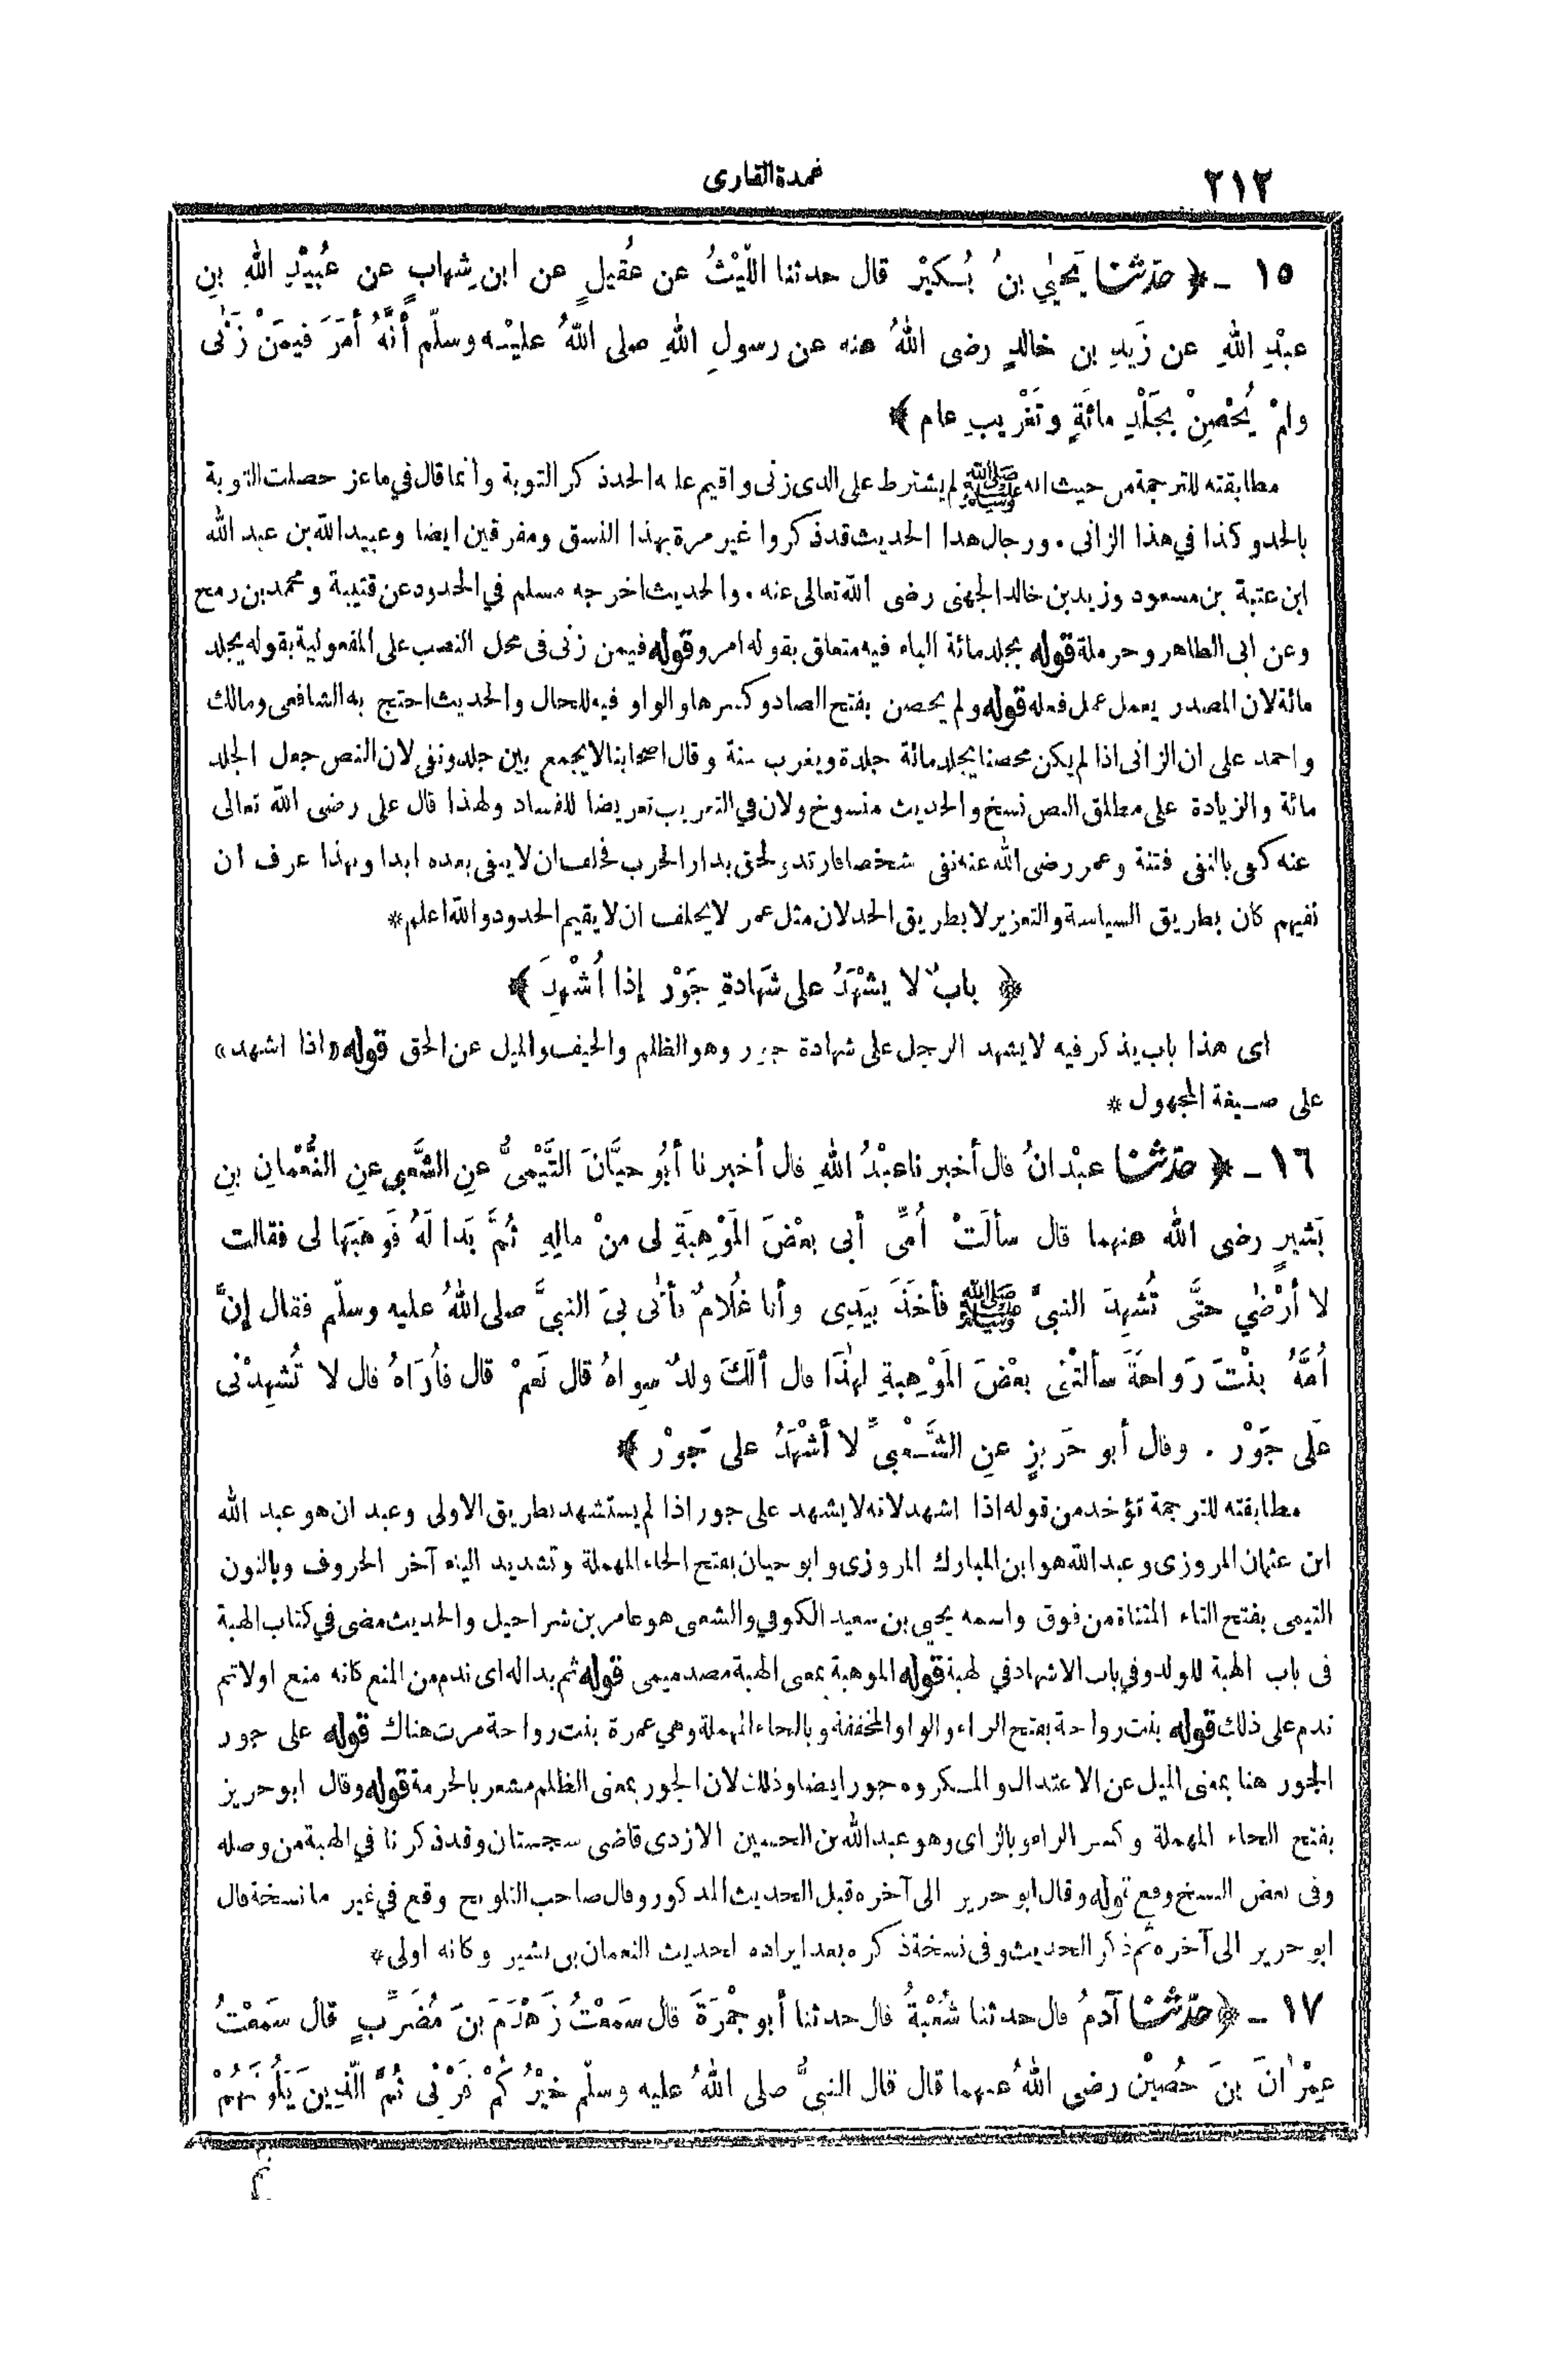 ٢١٢
عمدة القارى
١٥ - ﴿ حدثنا يَحْيَى بنُ بُكَيْرٍ قال حدثنا اللَّيْثُ عن عُقَيلٍ عن ابن شِهابٍ عن عُبَيْدِ اللهِ بنِ
عبْدِ اللهِ عن زَيدِ بن خالدٍ رضى اللهُ عنه عن رسولِ اللهِ صلى اللهُ عليْه وسلّم أنَّهُ أمَرَ فيمَنْ زَنٰى
ولمْ يُحْصِنْ بِجَلْدِ مائَةٍ وتَغْرِيبِ عام ﴾
مطابقته للترجمة من حيث انه ﷺ لم يشترط على الذى زنى واقيم عليه الحد ذكر التوبة وانما قال في ماعز حصلت التوبة
بالحد وكذا في هذا الزانى . ورجال هذا الحديث قد ذكروا غير مرة بهذا النسق ومفرقين ايضا وعبيد الله بن عبد الله
ابن عتبة بن مسعود وزيد بن خالد الجهنى رضى الله تعالى عنه . والحديث اخرجه مسلم في الحدود عن قتيبة ومحمد بن رمح
وعن ابى الطاهر وحرملة قوله بجلد مائة الباء فيه متعلق بقوله امر وقوله فيمن زنى فى محل النصب على المفعولية بقوله بجلد
مائة لان المصدر يعمل عمل فعله قوله ولم يحصن بفتح الصاد وكسرها والواو فيه للحال والحديث احتج به الشافعى ومالك
واحمد على ان الزانى اذا لم يكن محصنا يجلد مائة جلدة ويغرب سنة وقال اصحابنا لا يجمع بين جلد ونفى لان النص جعل الجلد
مائة والزيادة على مطلق النص نسخ والحديث منسوخ ولان في التغريب تعريضا للفساد ولهذا قال على رضى الله تعالى
عنه كفى بالنفى فتنة وعمر رضى الله عنه نفى شخصا فارتد ولحق بدار الحرب فحلف ان لا ينفى بعده ابدا وبهذا عرف ان
نفيهم كان بطريق السياسة والتعزير لا بطريق الحد لان مثل عمر لا يحلف ان لا يقيم الحدود والله اعلم *
﴿ بابٌ لا يشْهَدُ على شَهادةِ جَوْر إذا أُشْهِدَ ﴾
اى هذا باب يذكر فيه لا يشهد الرجل على شهادة جور وهو الظلم والحيف والميل عن الحق قوله «اذا اشهد»
على صيغة المجهول *
١٦ - ﴿ حدثنا عبْدانُ قال أخبرنا عبْدُ اللهِ قال أخبرنا أبُو حيَّانَ التَّيْمىُّ عنِ الشَّعْبي عنِ النُّعْمانِ بنِ
بَشيرٍ رضى الله عنهما قال سألَتْ أُمِّى أبى بعْضَ المَوْهِبَةِ لى منْ مالِهِ ثُمَّ بَدا لَهُ فَوَهَبَها لى فقالت
لا أرْضٰي حتَّى تُشهِدَ النبىَّ ﷺ فأخَذَ بيَدِى وأنا غُلامٌ فأتٰى بىَ النبىَّ صلى اللهُ عليه وسلّم فقال إنَّ
أُمَّهُ بنْتَ رَواحَةَ سألتْنى بعْضَ المَوْهِبةِ لِهٰذَا قال ألَكَ ولدٌ سِواهُ قال نَعَمْ قال فأُرَاهُ قال لا تُشهِدْنى
عَلَى جَوْر . وقال أبو حَرِيزٍ عنِ الشَّعْبىِّ لا أشْهَدُ على جَوْر ﴾
مطابقته للترجمة تؤخد من قوله اذا اشهد لانه لا يشهد على جور اذا لم يستشهد بطريق الاولى وعبدان هو عبد الله
ابن عثمان المروزى وعبد الله هو ابن المبارك المروزى وابو حيان بفتح الحاء المهملة وتشديد الياء آخر الحروف وبالنون
التيمى بفتح التاء المثناة من فوق واسمه يحيى بن سعيد الكوفي والشعبى هو عامر بن شراحيل والحديث مضى في كتاب الهبة
فى باب الهبة للولد وفي باب الاشهاد في لهبة قوله الموهبة بمعى الهبة مصدميمى قوله ثم بدا له اى ندم من المنع كانه منع اولا ثم
ندم على ذلك قوله بنت رواحة بفتح الراء والواو المخففة وبالحاء المهملة وهي عمرة بنت رواحة مرت هناك قوله على جور
الجور هنا بمعنى الميل عن الاعتدال والمكروه جور ايضا وذلك لان الجور بمعنى الظلم مشعر بالحرمة قوله وقال ابو حريز
بفتح الحاء المهملة وكسر الراء وبالزاى وهو عبد الله بن الحسين الازدى قاضى سجستان وقد ذكرنا في الهبة من وصله
وفى بعض النسخ وقع قوله وقال ابو حرير الى آخره قبل الحديث المذكور وقال صاحب التلويح وقع في غير ما نسخة قال
ابو حرير الى آخره ثم ذكر الحديث وفى نسخة ذكره بعد ايراده لحديث النعمان بن بشير وكانه اولى *
١٧ - ﴿ حدثنا آدمُ قال حدثنا شُعْبةُ قال حدثنا أبو جمْرَةَ قال سَمِعْتُ زَهْدَمَ بنَ مُضَرِّبٍ قال سَمِعْتُ
عِمْرانَ بنَ حُصيْن رضى اللهُ عنهما قال قال النبىُّ صلى اللهُ عليه وسلّم خيْرُكُمْ قَرْنى ثُمَّ الّذِينَ يَلُونَهُمْ